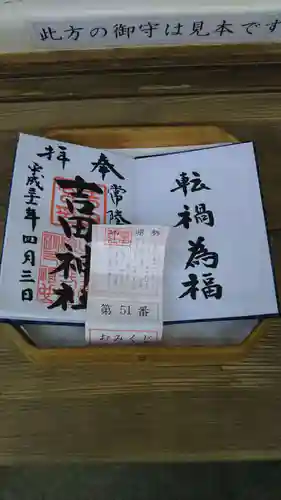 此方の御守は見本です
奉拝
常陸
吉田神社
平成三十一年四月三日
転禍為福
第51番
おみくじ